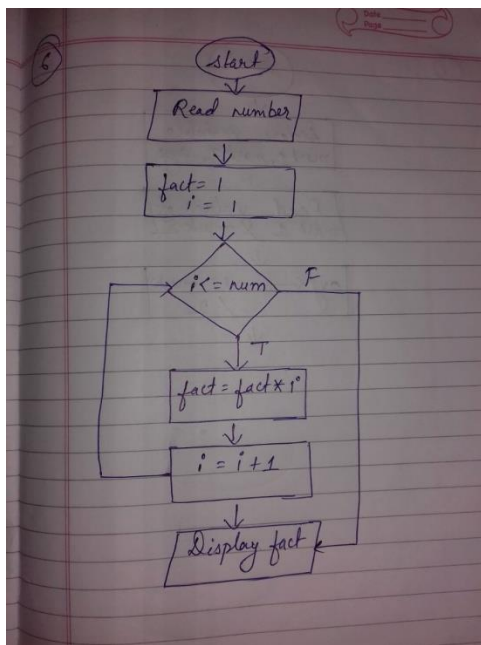 Date
Page
6
start
Read number
fact = 1
i = 1
i <= num
F
T
fact = fact * i
i = i + 1
Display fact